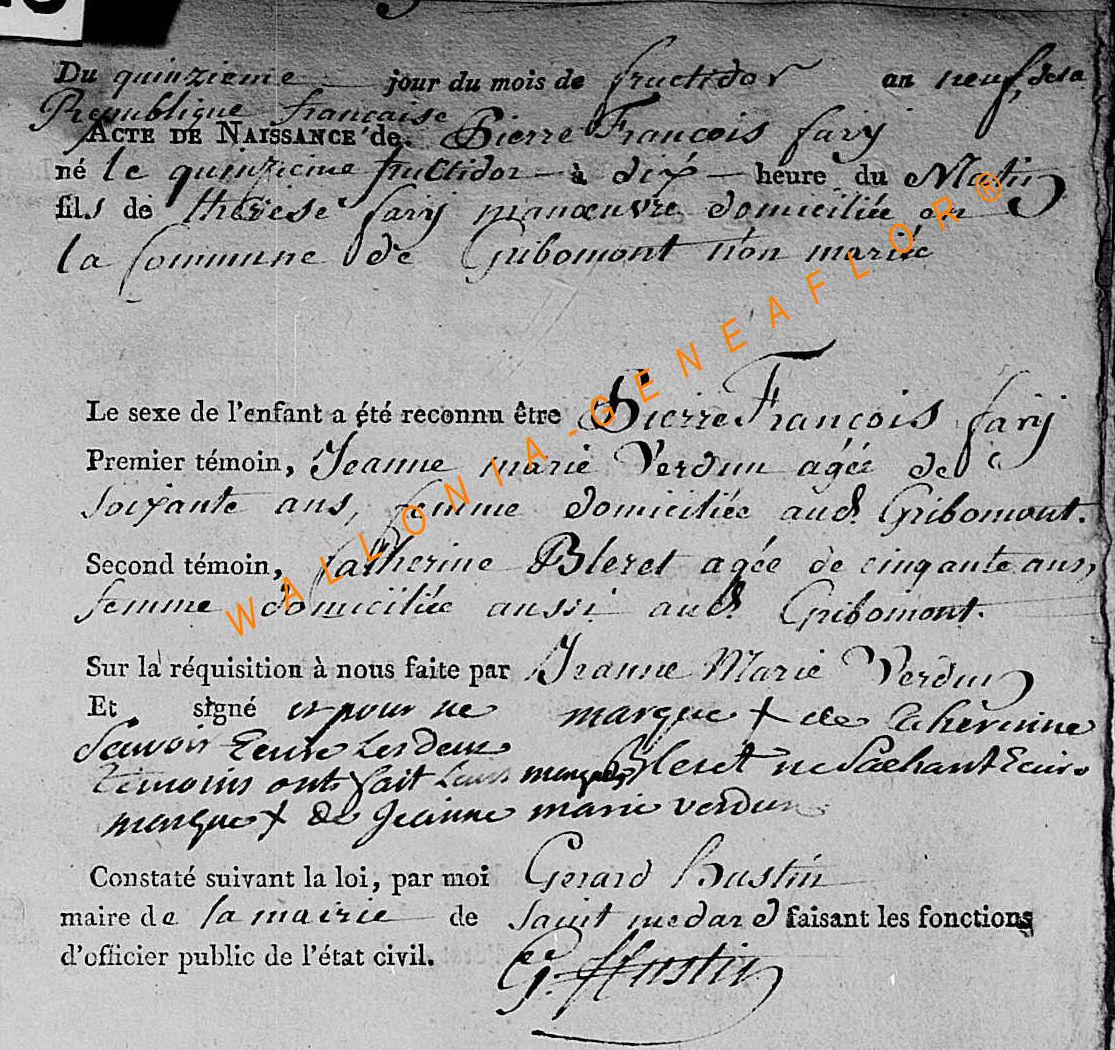 Du quinzieme jour du mois de fructidor an neuf, de la
Republique francaise
ACTE DE NAISSANCE de Pierre François fary
né le quinzieme fructidor à dix heure du Matin
fils de thérèse fary manœuvre domiciliée en
la Commune de Gribomont non mariée
Le sexe de l'enfant a été reconnu être Pierre François fary
Premier témoin, Jeanne marie Verdun agée de
soixante ans, femme domiciliée aud. Gribomont.
Second témoin, Catherine Bleret agée de cinqante ans,
femme domiciliée aussi aud. Gribomont.
Sur la réquisition à nous faite par Jeanne Marie Verdun
Et signé et pour ne marque + de Catherinne
Scavoir Ecrire Les deux
temoins ont fait Leurs marques Bleret ne Sachant Ecrire
marque + de Jeanne marie verdun
Constaté suivant la loi, par moi Gerard Hustin
maire de la mairie de saint medard faisant les fonctions
d'officier public de l'état civil.
G. Hustin
WALLONIA-GENEAFLOR®